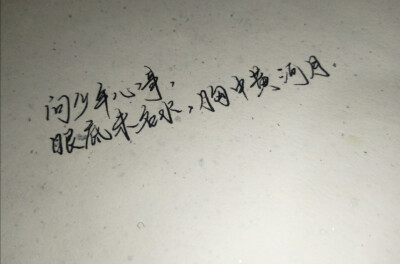 问少年心事，
眼底未名水，胸中黄河月。